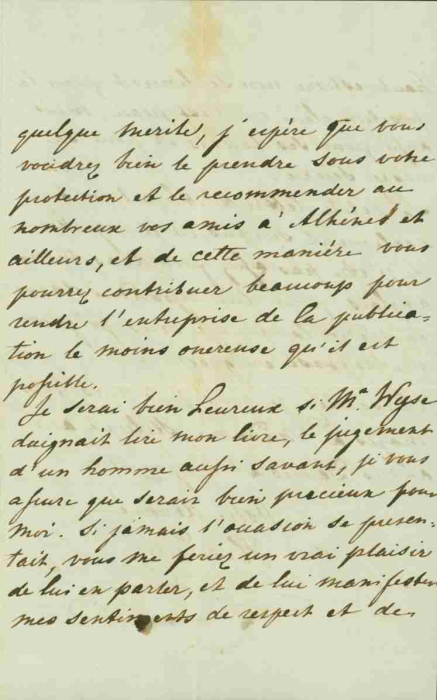 quelque merite, j'espére que vous
voudrez bien le prendre sous votre
protection et le recommender au
nombreux vos amis à Athénes et
ailleurs, et de cette maniére vous
pourrez contribuer beaucoup pour
rendre l'entreprise de la publica-
tion le moins onereuse qu'il est
possible.
Je serai bien heureux si Mr. Wyse
daignait lire mon livre, le jugement
d'un homme aussi savant, je vous
assure que serait bien precieux pour
moi. Si jamais l'occasion se presen-
tait, vous me feriez un vrai plaisir
de lui en parler, et de lui manifester
mes sentiments de respect et de